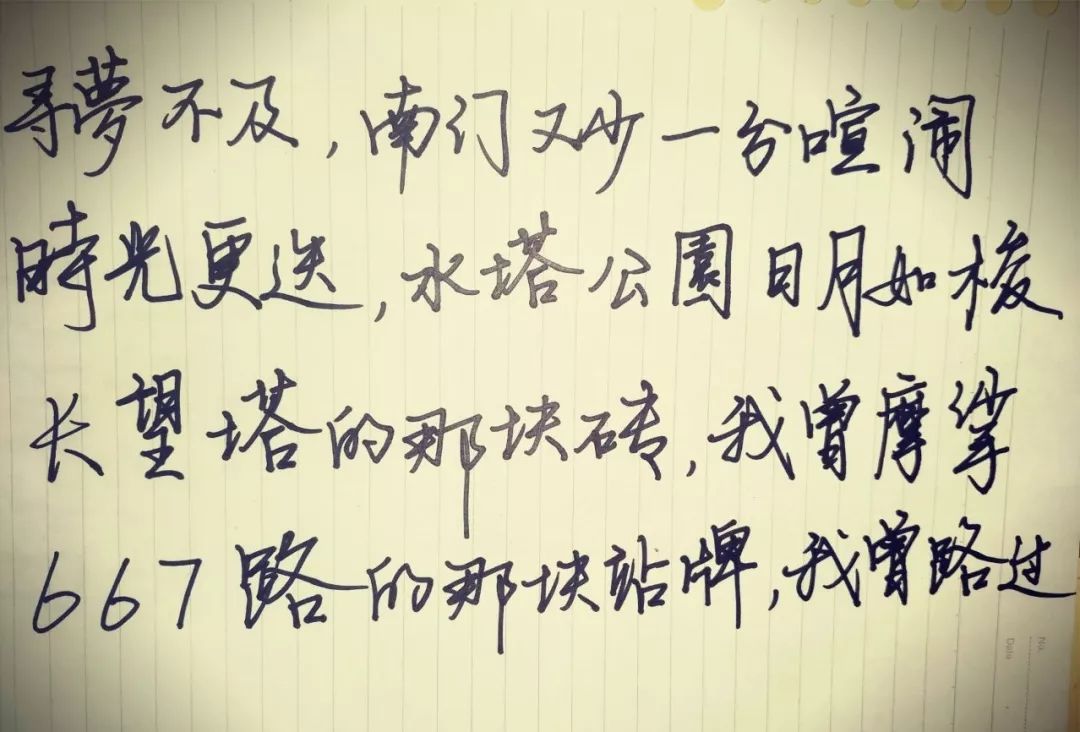 寻夢不及，南门又少一分喧闹
時光更迭，水塔公園日月如梭
长望塔的那块砖，我曾摩挲
667路的那块站牌，我曾路过
No.
Date